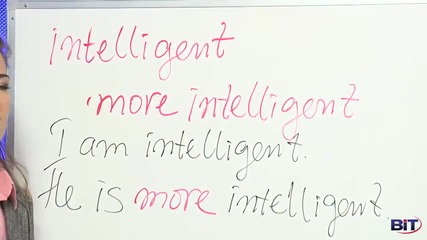 intelligent
· more intelligent
I am intelligent.
He is more intelligent.
BiT